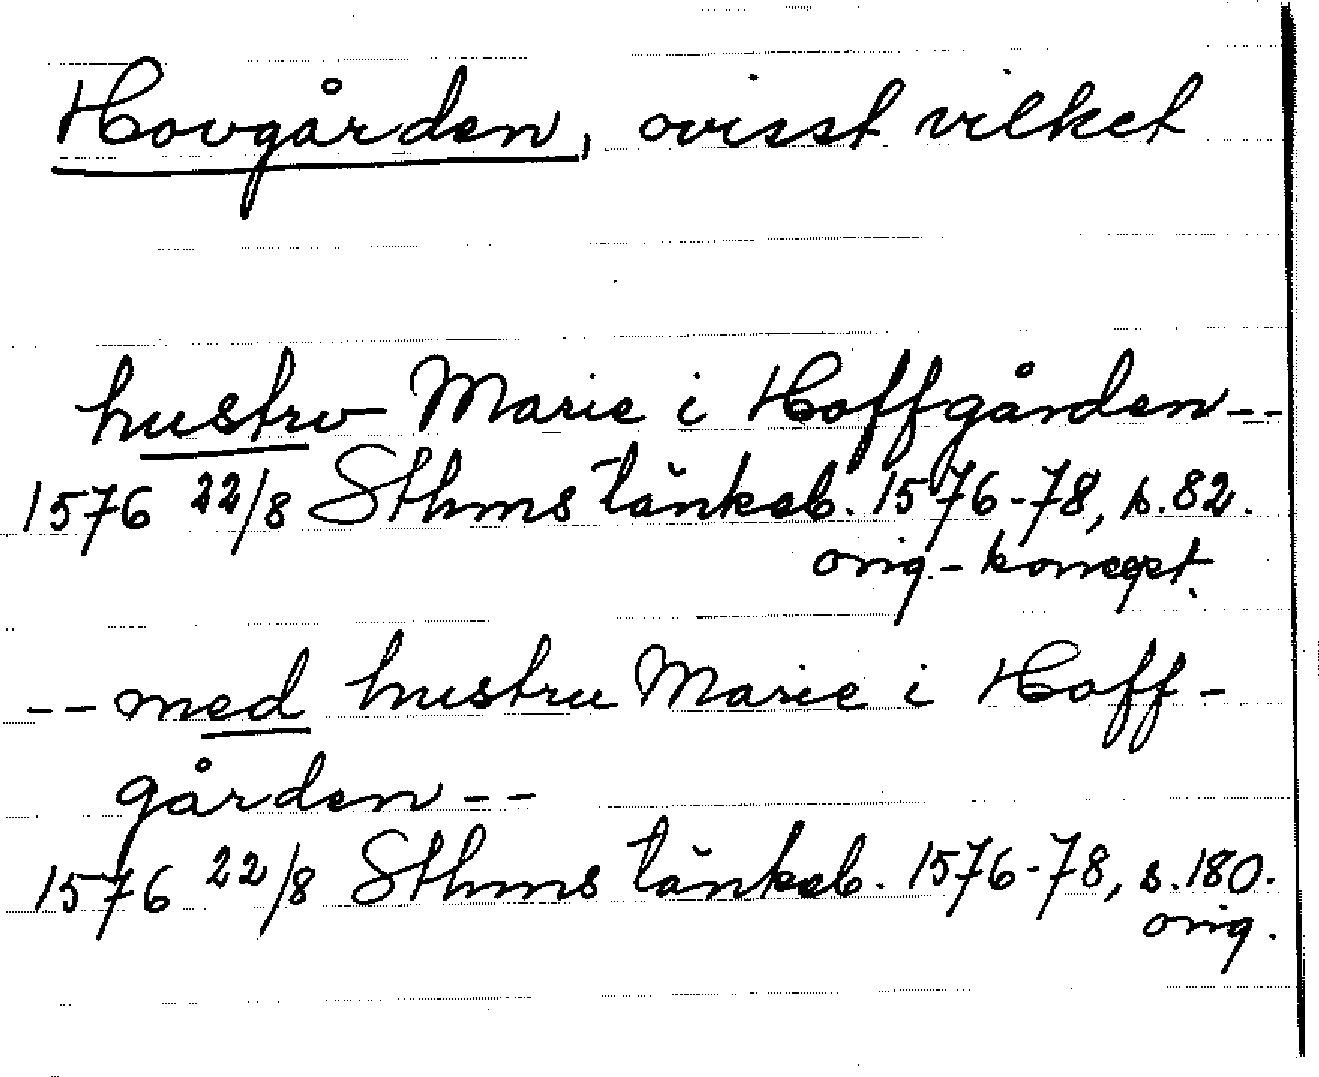 Hovgården, ovisst vilket
hustru Marie i Hoffgården--
1576 22/8 Sthms tänkeb. 1576-78, s.82.
orig.-koncept.
--med hustru Marie i Hoff-
gården--
1576 22/8 Sthms tänkeb. 1576-78, s.180.
orig.